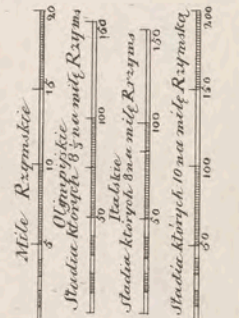 Mile Rzymskie
5 10 15 20
Olympiyskie
Stadia których 8⅓ na milę Rzyms
50 100 150
Italskie
Stadia których 8 na milę Rrzyms
50 100 150
Stadia których 10 na milę Rzymską
50 100 150 200